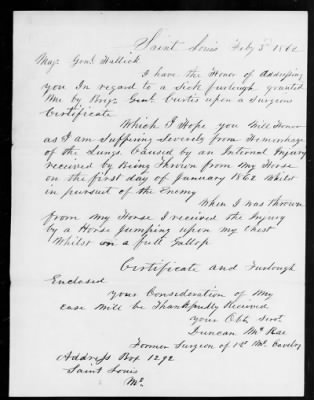 Saint Louis Feby 5th 1862
Maj. Genl. Halleck
I have the Honor of Addressing
you In regard to a Sick furlough granted
Me by Brig. Genl. Curtis upon a Surgeons
Certificate
Which I Hope you Will Honor
as I am Suffering Severely from Hemorhage
of the Lungs Caused by an Internal Injury
received by Being Thrown from My Horse
on the first day of January 1862 Whilst
in pursuit of the Enemy
When I was thrown
from My Horse I received the Injury
by a Horse Jumping upon my Chest
Whilst on a full Gallop
Certificate and Furlough
Enclosed
your Consideration of My
case Will be Thankfully Received
your Obt. Servt.
Duncan McRae
Former Surgeon of 1st Mo. Cavalry
Address Box 1292
Saint Louis
Mo.